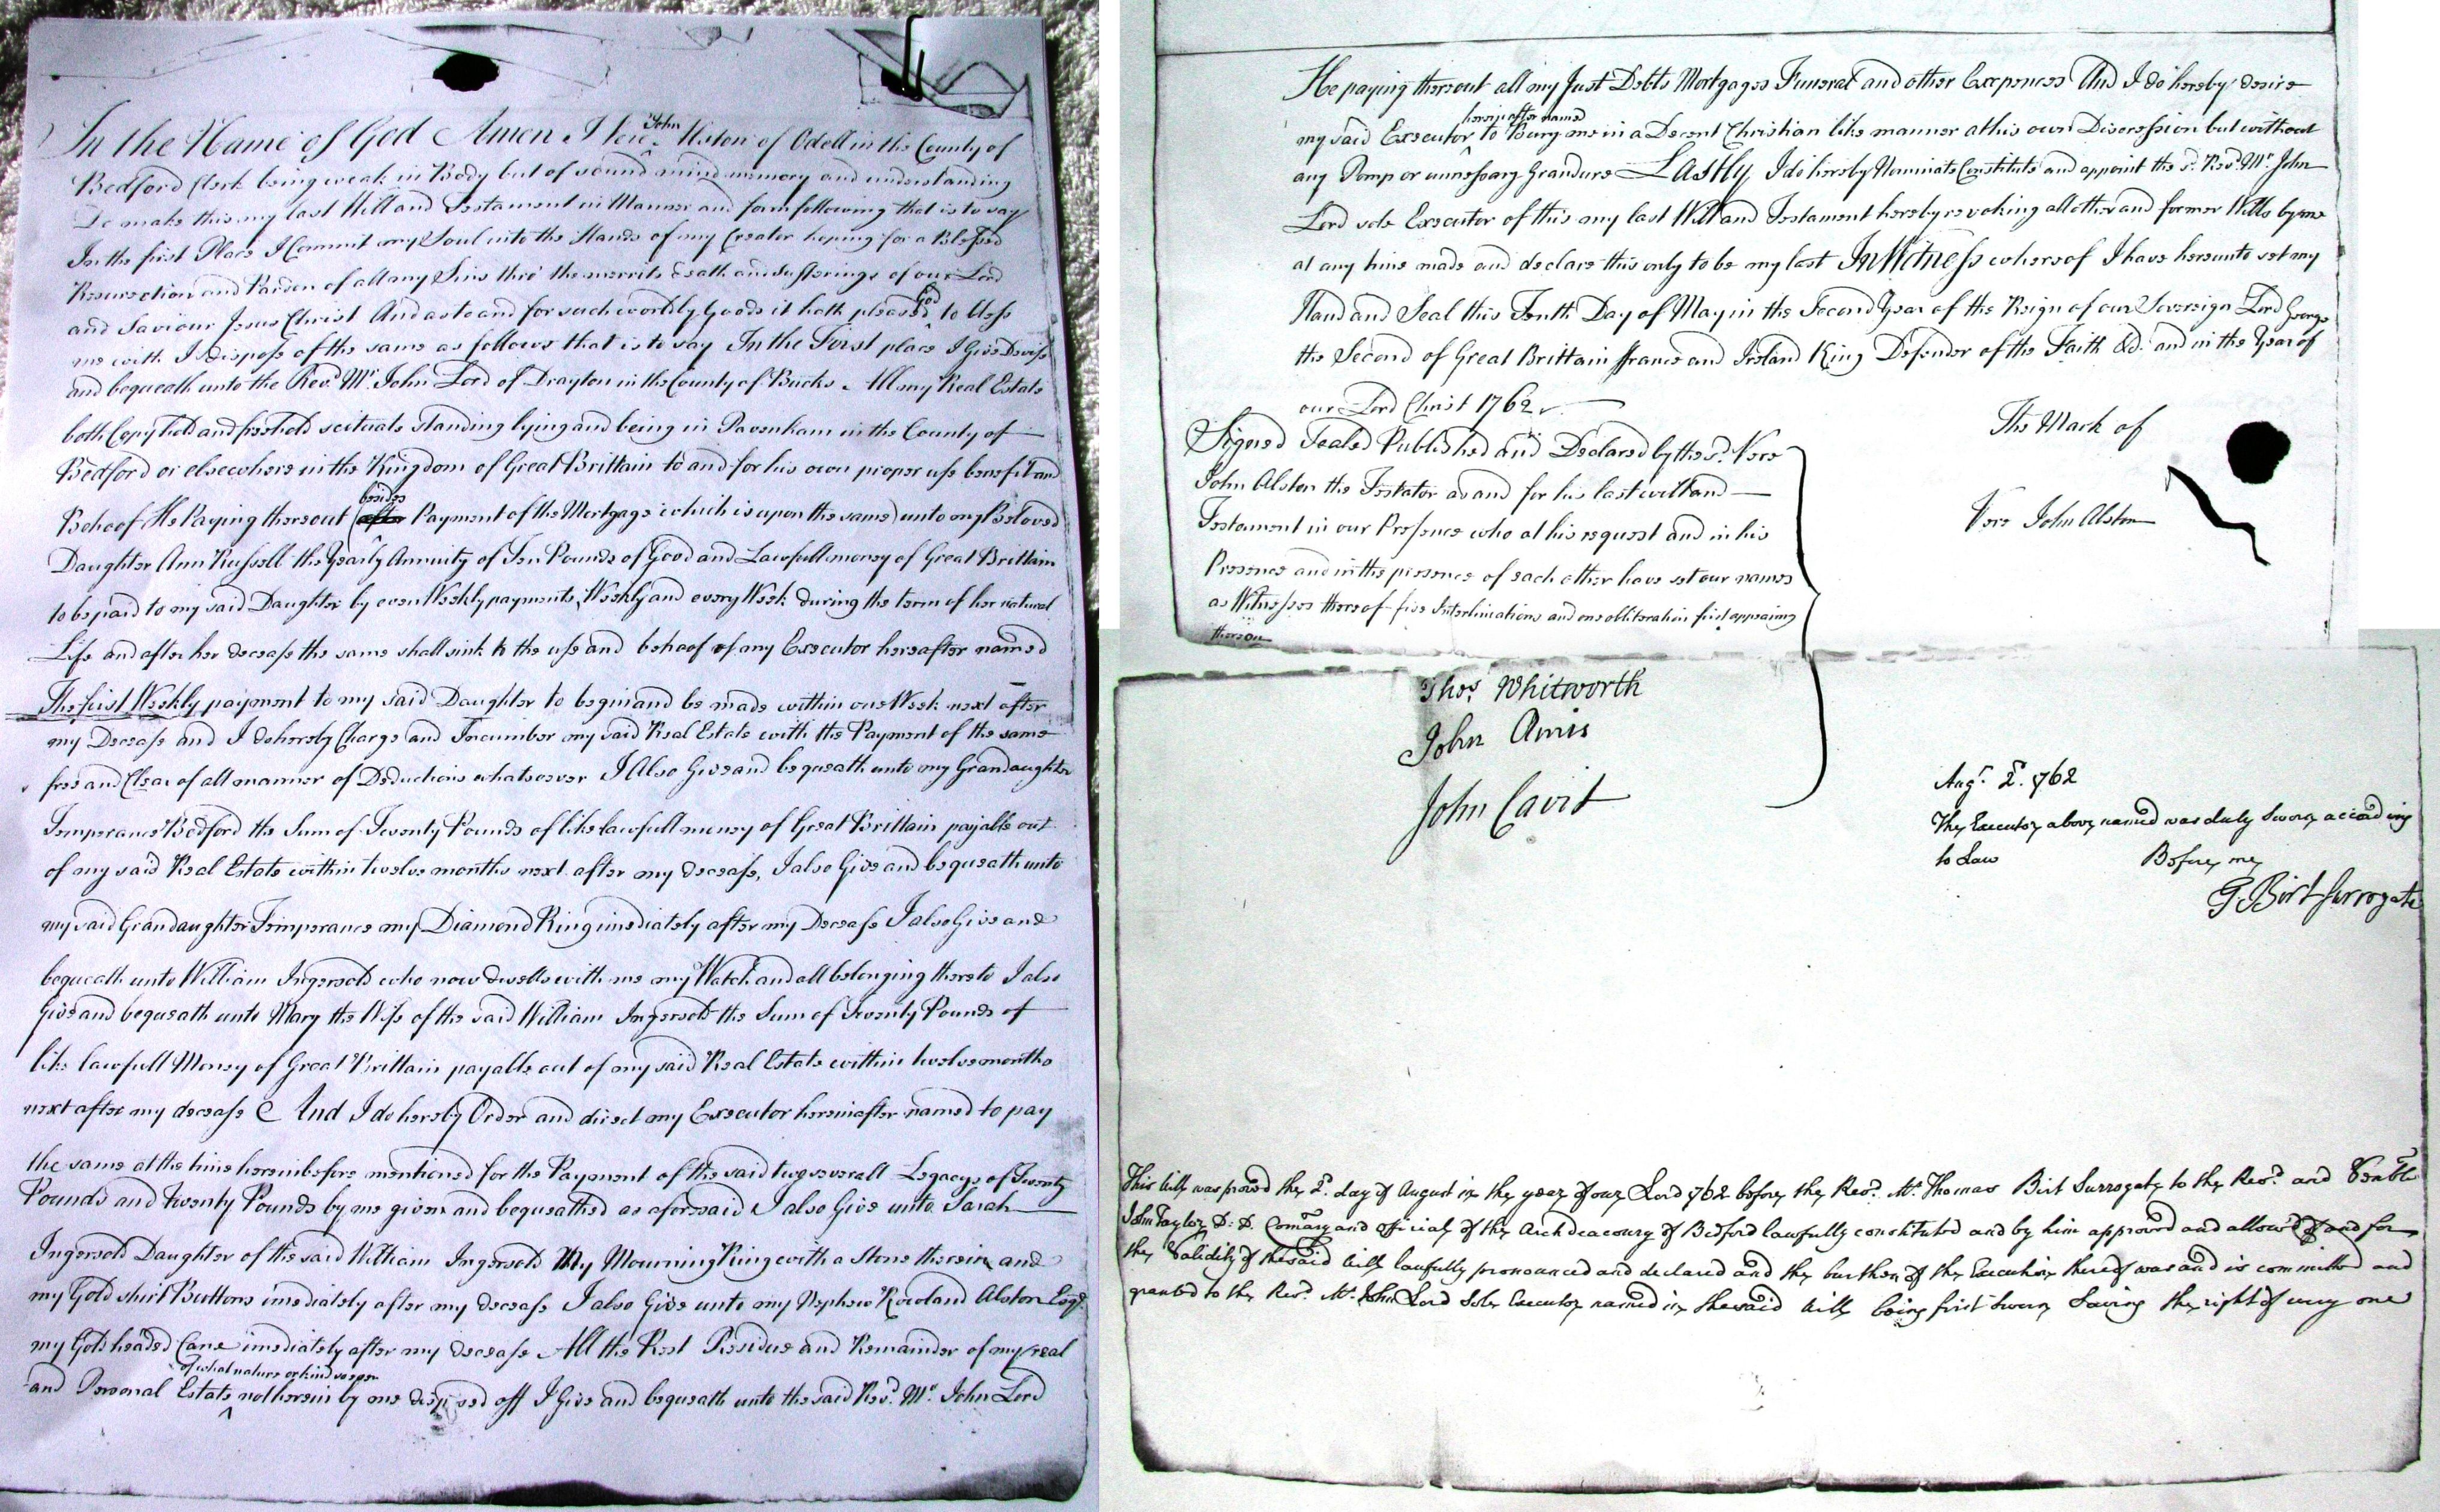 In the Name of God Amen I Vere John Alston of Odell in the County of
Bedford Clerk being weak in Body but of sound mind memory and understanding
Do make this my last Will and Testament in Manner and form following that is to say
In the first Place I Commit my Soul into the Hands of my Creator hoping for a Blessed
Resurection and Pardon of all my Sins thro' the merrits death and sufferings of our Lord
and Saviour Jesus Christ And as to and for such worldly Goods it hath pleased God to bless
me with I dispose of the same as follows that is to say In the First place I Give Devise
and bequeath unto the Revd. Mr. John Lord of Drayton in the County of Bucks All my Real Estate
both Copyhold and freehold scituate standing lying and being in Pavenham in the County of
Bedford or elsewhere in the Kingdom of Great Brittain to and for his own proper use benefit and
Behoof He Paying thereout (besides Payment of the Mortgage which is upon the same) unto my Beloved
Daughter Ann Russell the Yearly Annuity of Ten Pounds of Good and Lawfull money of Great Brittain
to be paid to my said Daughter by even Weekly payments, Weekly and every Week during the term of her natural
Life and after her decease the same shall sink to the use and behoof of my Executor hereafter named
The first Weekly payment to my said Daughter to begin and be made within one Week next after
my Decease and I do hereby Charge and Incumber my said Real Estate with the Payment of the same
free and Clear of all manner of Deductions whatsoever I Also Give and bequeath unto my Grandaughter
Temperance Bedford the Sum of Twenty Pounds of like lawfull money of Great Brittain payable out
of my said Real Estate within twelve months next after my decease, I also Give and bequeath unto
my said Grandaughter Temperance my Diamond Ring imediately after my Decease I also Give and
bequeath unto William Ingersold who now dwells with me my Watch and all belonging thereto I also
Give and bequeath unto Mary the Wife of the said William Ingersold the Sum of Twenty Pounds of
like lawfull Money of Great Brittain payable out of my said Real Estate within twelve months
next after my decease And I do hereby Order and direct my Executor hereinafter named to pay
the same at the time hereinbefore mentioned for the Payment of the said two severall Legacys of Twenty
Pounds and twenty Pounds by me given and bequeathed as aforesaid I also Give unto Sarah
Ingersold Daughter of the said William Ingersold My Mourning Ring with a Stone therein and
my Gold shirt Buttons imediately after my decease I also Give unto my Nephew Rowland Alston Esqr.
my Gold headed Cane imediately after my decease All the Rest Residue and Remainder of my real
and Personal Estate of what nature or kind soever not herein by me disposed off I Give and bequeath unto the said Revd. Mr. John Lord
He paying thereout all my Just Debts Mortgages Funeral and other Expences And I do hereby desire
my said Executor hereinafter named to Bury me in a Decent Christian like manner at his own Discression but without
any Pomp or unnessary Grandure Lastly I do hereby Nominate Constitute and appoint the sd. Revd. Mr. John
Lord sole Executor of this my last Will and Testament hereby revoking all other and former Wills by me
at any time made and declare this only to be my last In Witness whereof I have hereunto set my
Hand and Seal this Tenth Day of May in the Second Year of the Reign of our Sovereign Lord George
the Second of Great Brittain ffrance and Ireland King Defender of the Faith &c. and in the Year of
our Lord Christ 1762
Signed Sealed Published and Declared by the sd. Vere
John Alston the Testator as and for his last will and
Testament in our Presence who at his request and in his
Presence and in the presence of each other have set our names
as Witnesses thereof five Interlineations and one obliteration first appearing
thereon
The Mark of
Vere John Alston
Thos. Whitworth
John Amis
John Cavit
Augt. 2d. 1762
The Executor above named was duly Sworn according
to Law Before me
T. Birt Surrogate
This Will was proved the 2d. day of August in the year of our Lord 1762 before the Revd. Mr. Thomas Birt Surrogate to the Revd. and Venble
John Taylor D. D. Comry and official of the Archdeaconry of Bedford lawfully constituted and by him approved and allowed of and for
the Validity of the said Will lawfully pronounced and declared and the burthen of the Execution thereof was and is committed and
granted to the Revd. Mr. John Lord Sole Executor named in the said Will being first Sworn Saving the right of every one